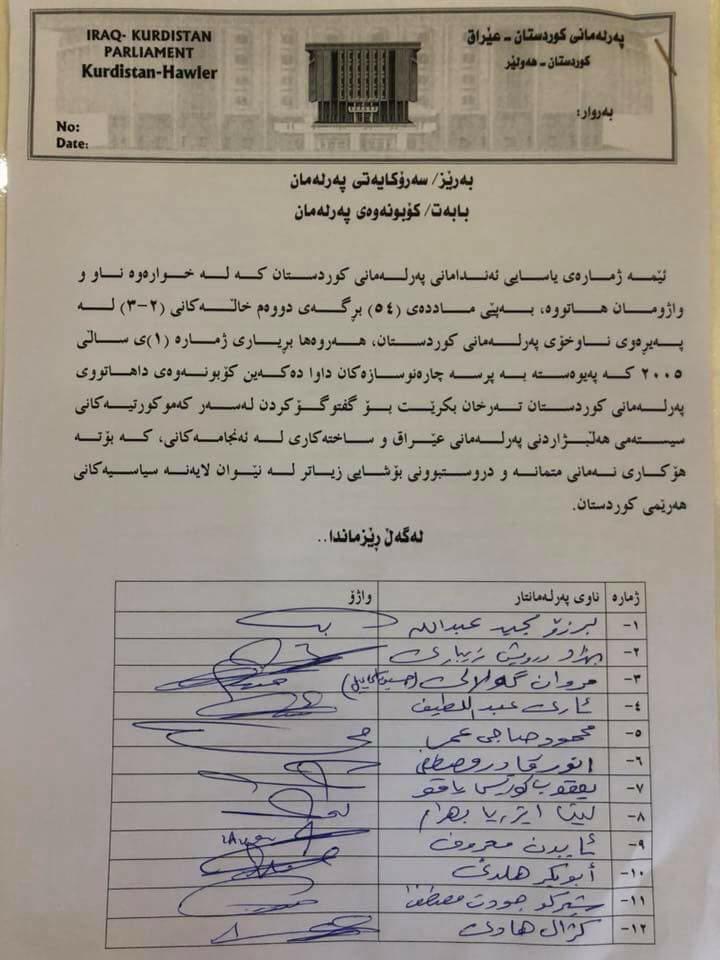 IRAQ- KURDISTAN
PARLIAMENT
Kurdistan-Hawler
No:
Date:
پەرلەمانی کوردستان - عێراق
کوردستان - هەولێر
بەروار:
بەرێز/ سەرۆکایەتی پەرلەمان
بابەت/ کۆبونەوەی پەرلەمان
ئێمە ژمارەی یاسایی ئەندامانی پەرلەمانی کوردستان کە لە خوارەوە ناو و
واژومان هاتووە، بەپێی ماددەی (٥٤) برگەی دووەم خاڵەکانی (٢-٣) لە
پەیرەوی ناوخۆی پەرلەمانی کوردستان، هەروەها بریاری ژمارە (١)ی ساڵی
٢٠٠٥ کە پەیوەستە بە پرسە چارەنوسازەکان داوا دەکەین کۆبونەوەی داهاتووی
پەرلەمانی کوردستان تەرخان بکرێت بۆ گفتوگۆکردن لەسەر کەموکورتیەکانی
سیستەمی هەڵبژاردنی پەرلەمانی عێراق و ساختەکاری لە ئەنجامەکانی، کە بۆتە
هۆکاری نەمانی متمانە و دروستبوونی بۆشایی زیاتر لە نێوان لایەنە سیاسیەکانی
هەرێمی کوردستان.
لەگەڵ رێزماندا..
ژمارە ناوی پەرلەمانتار واژۆ
١- برزۆ مجید عبدالله
٢- بهزاد درویش زیباری
٣- مروان گەڵاڵی
٤- ئاری عبداللطیف
٥- محمود حاجی عمر
٦- انور قادر مصطفی
٧- یعقوب کورکیس یاقو
٨- لینا ایزریا بهرام
٩- ئایدن معروف
١٠- أبوبکر هلدنی
١١- شێرکو جودت مصطفی
١٢- کژاڵ هادی